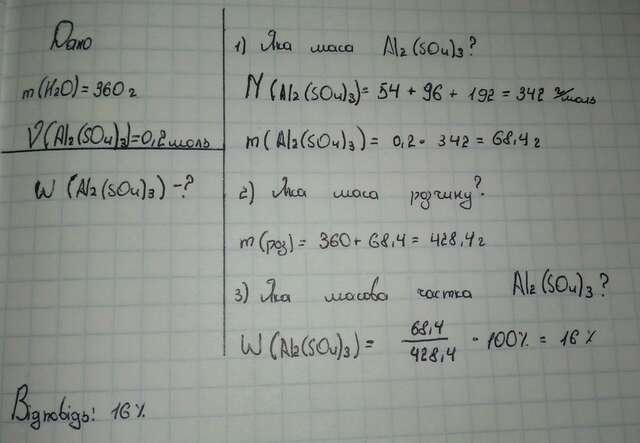 Дано
m(H2O)=360г
V(Al2(SO4)3)=0,2моль
W (Al2(SO4)3) -?
1) Яка маса Al2(SO4)3?
M(Al2(SO4)3)= 54 + 96 + 192 = 342 г/моль
m(Al2(SO4)3) = 0,2 · 342 = 68,4 г
2) Яка маса розчину?
m(роз) = 360 + 68,4 = 428,4 г
3) Яка масова частка Al2(SO4)3?
W(Al2(SO4)3) = 68,4/428,4 · 100% = 16 %
Відповідь: 16%